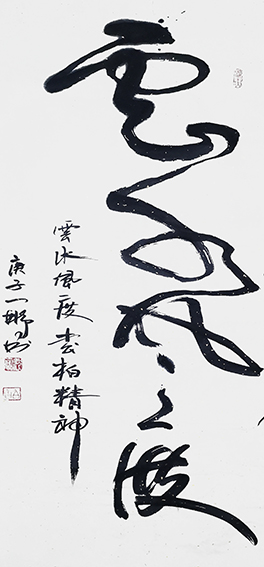 雲水風度
雲水風度枩柏精神
庚子一